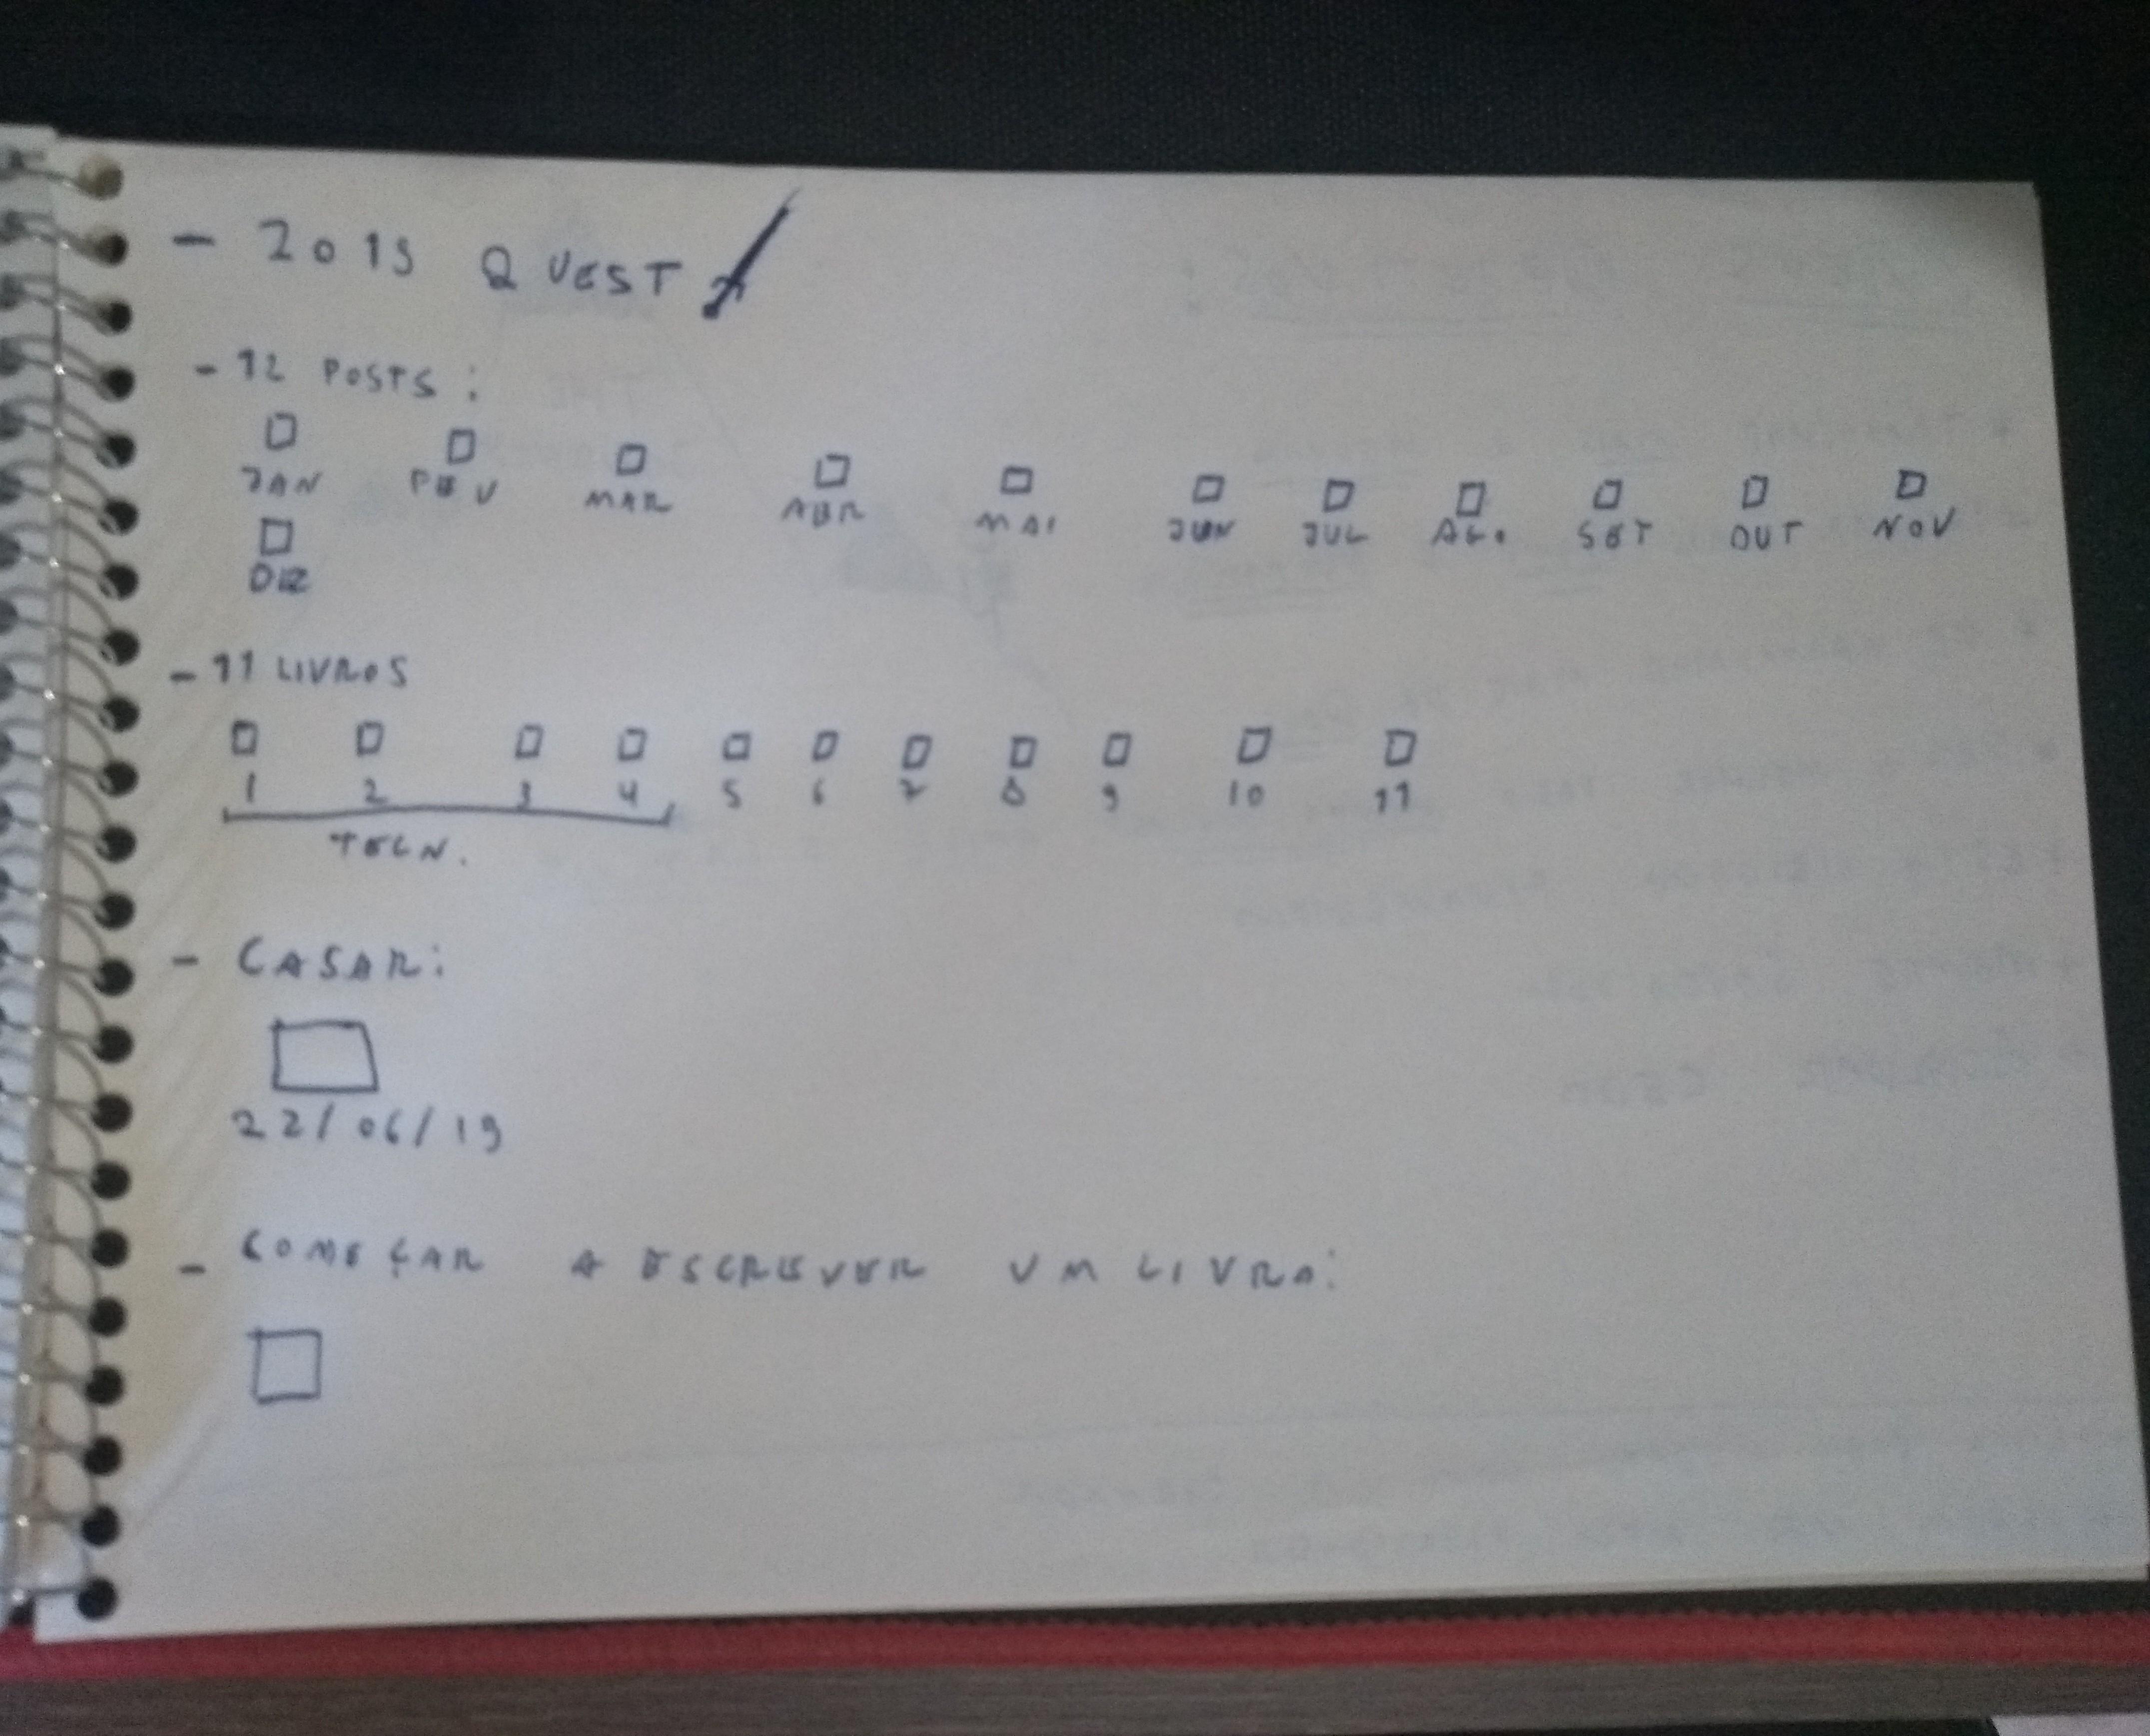 - 2019 QUEST
- 12 POSTS:
JAN FEV MAR ABR MAI JUN JUL AGO SET OUT NOV
DEZ
- 11 LIVROS
1 2 3 4 5 6 7 8 9 10 11
TECN.
- CASAR:
22/06/19
- COMEÇAR A ESCREVER UM LIVRO: